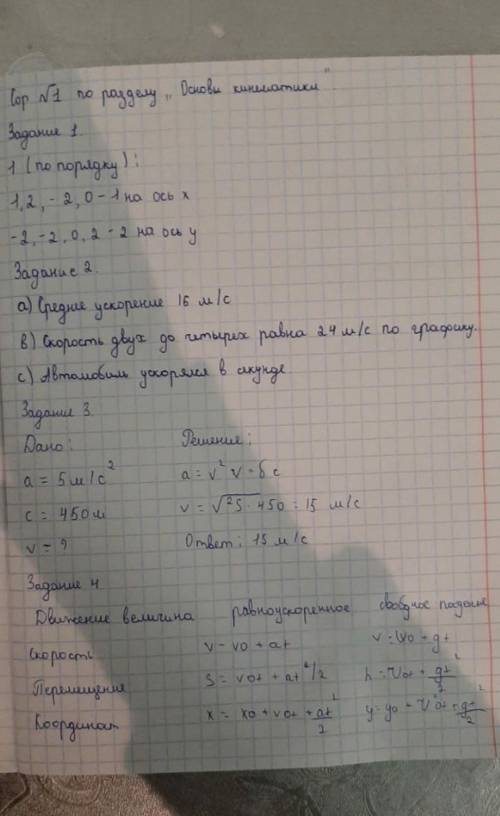 Сор №1 по разделу „Основы кинематики"
Задание 1.
1 (по порядку):
1, 2, - 2, 0 - 1 на ось x
-2, -2, 0, 2 - 2 на ось y
Задание 2.
a) Средние ускорение 16 м/с
b) Скорость двух до четырех равна 24 м/с по графику.
c) Автомобиль ускорялся в секунде
Задание 3.
Дано: Решение:
a = 5 м/с² a = v² v - 6 c
c = 450 м v = √25 · 450 = 15 м/с
v = ? Ответ: 15 м/с
Задание 4
Движение величина равноускоренное свободное падение
Скорость v = v0 + at v = v0 + gt
Перемещение S = v0t + at²/2 h = v0t + gt²/2
Координат x = x0 + v0t + at²/2 y = y0 + v0t + gt²/2